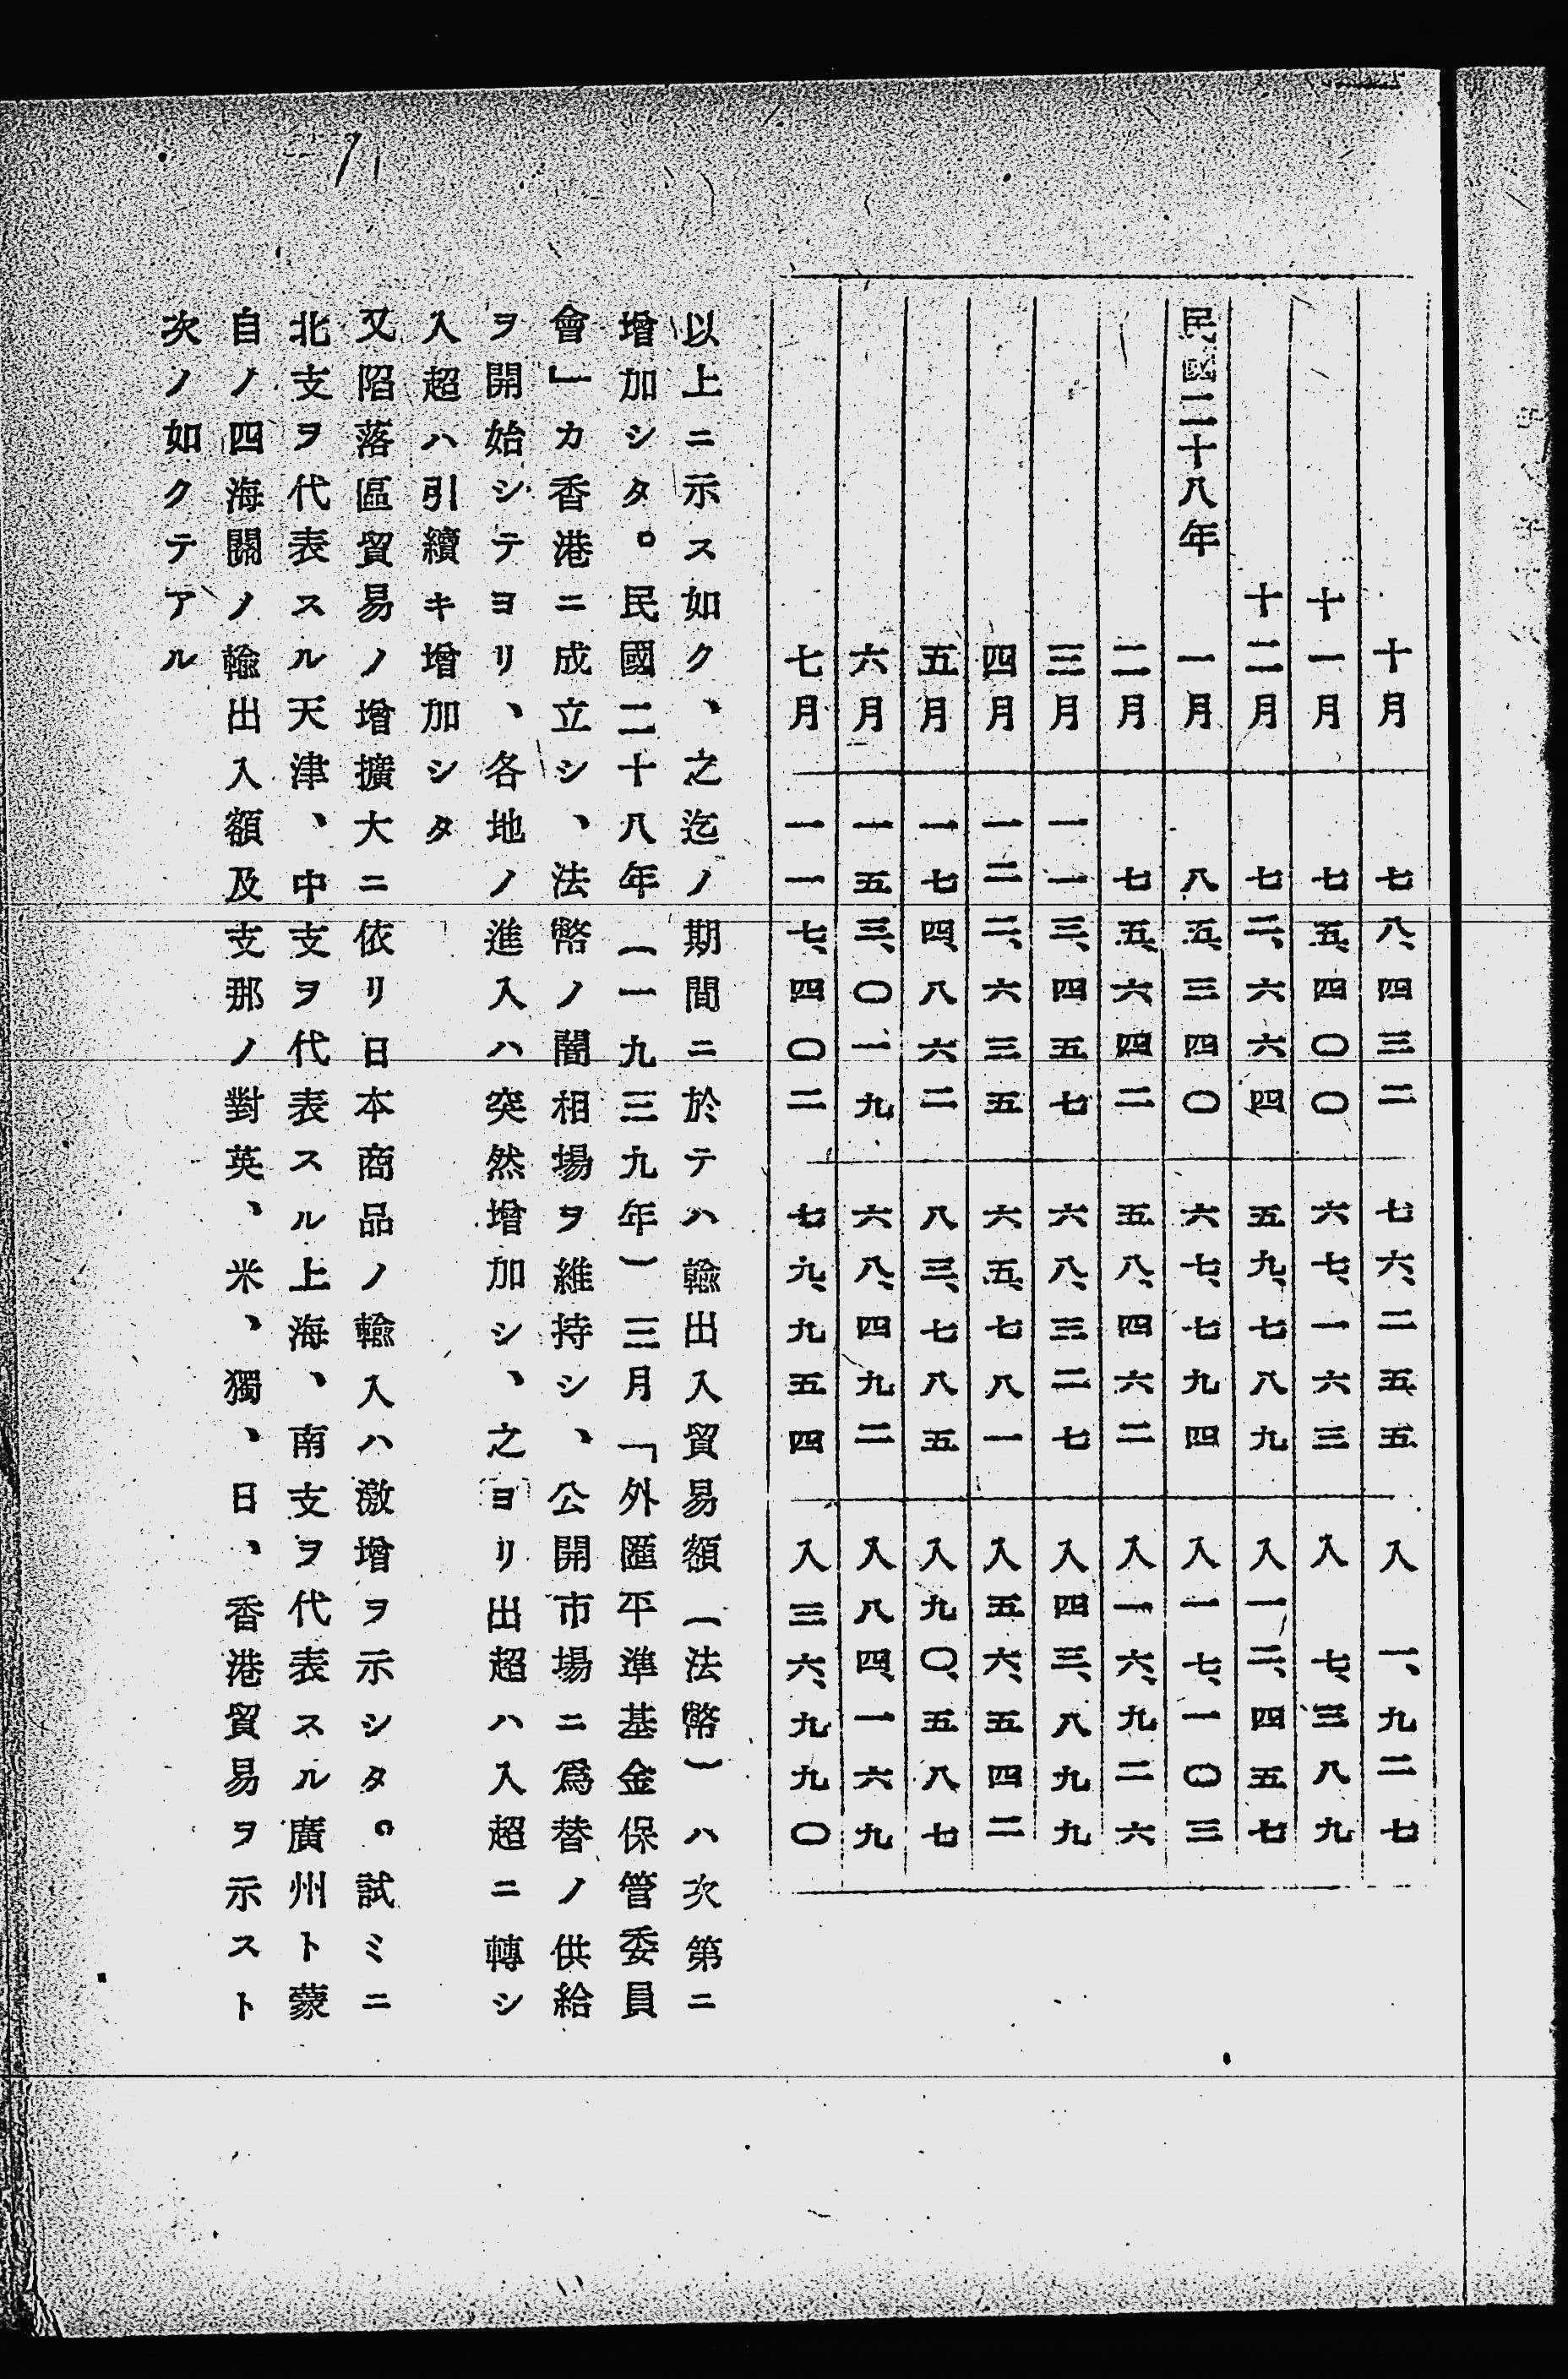 71
十月 七八、四三二 七六、二五五 入 一、九二七
十一月 七五、四〇〇 六七、一六三 入 七、三八九
十二月 七二、六六四 五九、七八九 入一二、四五七
民國二十八年 一月 八五、三四〇 六七、七九四 入一七、一〇三
二月 七五、六四二 五八、四六二 入一六、九二六
三月 一一三、四五七 六八、三二七 入四三、八九九
四月 一二二、六三五 六五、七八一 入五六、五四二
五月 一七四、八六二 八三、七八五 入九〇、五八七
六月 一五三、〇一九 六八、四九二 入八四、一六九
七月 一一七、四〇二 七九、九五四 入三六、九九〇
以上ニ示ス如ク、之迄ノ期間ニ於テハ輸出入貿易額（法幣）ハ次第ニ
增加シタ。民國二十八年（一九三九年）三月「外匯平準基金保管委員
會」カ香港ニ成立シ、法幣ノ闇相場ヲ維持シ、公開市場ニ爲替ノ供給
ヲ開始シテヨリ、各地ノ進入ハ突然增加シ、之ヨリ出超ハ入超ニ轉シ
入超ハ引續キ增加シタ
又陷落區貿易ノ增擴大ニ依リ日本商品ノ輸入ハ激增ヲ示シタ。試ミニ
北支ヲ代表スル天津、中支ヲ代表スル上海、南支ヲ代表スル廣州ト蒙
自ノ四海關ノ輸出入額及支那ノ對英、米、獨、日、香港貿易ヲ示スト
次ノ如クテアル